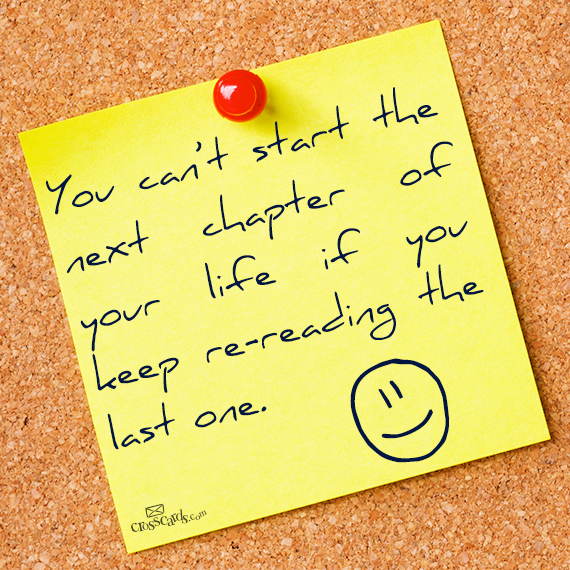 You can't start the
next chapter of
your life if you
keep re-reading the
last one.
crosscards.com